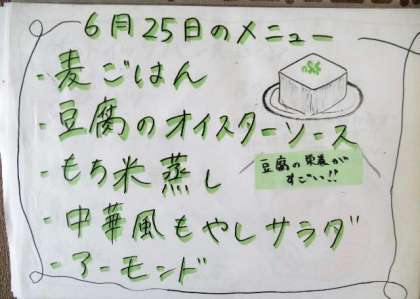 6月25日のメニュー
・麦ごはん
・豆腐のオイスターソース
・もち米蒸し
・中華風もやしサラダ
・アーモンド
豆腐の栄養が
すごい!!